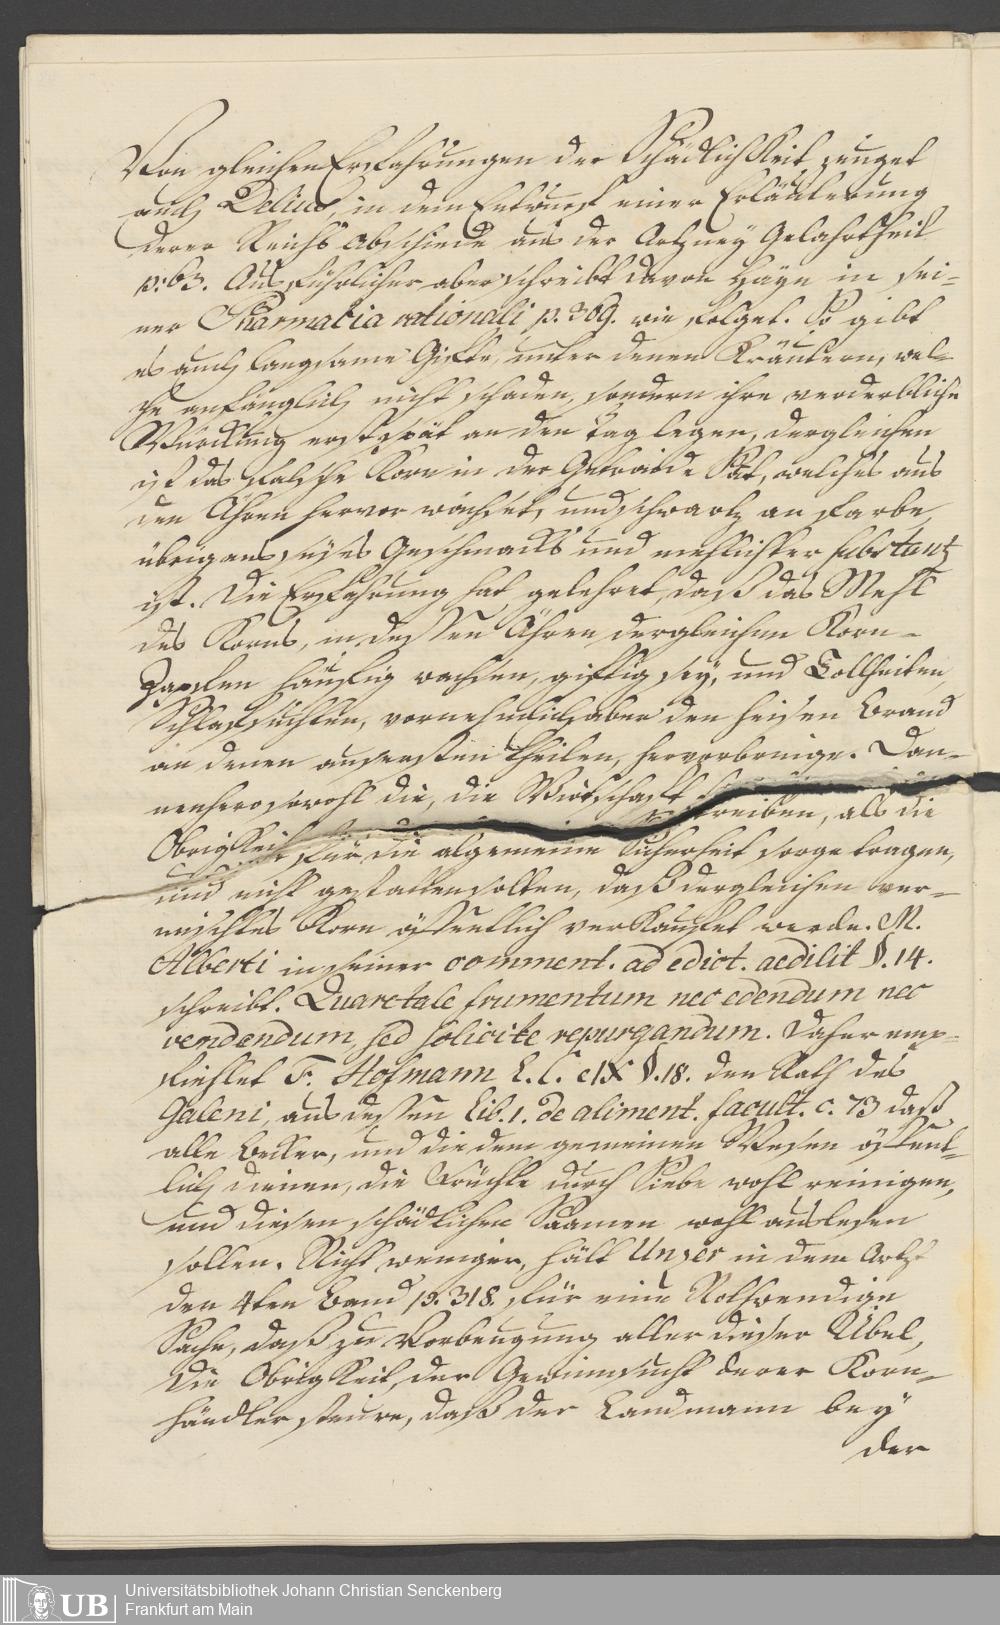 Von gleichen Erfahrungen der Schädlichkeit zeuget
auch Delius, in dem Entwurf einer Erläuterung
derer Reichs Abschiede aus der Artzney Gelahrtheit
p: 63. Ausführlicher aber schreibt davon Hayn in sei-
ner Pharmacia rationali p. 309. wie folget. So gibt
es auch langsame Giffte, unter denen Kräutern, wel-
che anfänglich nicht schaden, sondern ihre verderbliche
Würckung erst spät an den Tag legen, dergleichen
ist das falsche Korn in der Getraide Art, welches aus
den Ähren hervor wächset, und schwartz an Farbe,
übrigens süses Geschmacks und mehlichter substantz
ist. Die Erfahrung hat gelehret, daß das Mehl
des Korns, in dessen Ähren dergleichen Korn-
Zapfen häufig wachsen, gifftig sey, und Tollheiten,
Schlafsuchten, vornehmlich aber den heisen Brand
an denen äusersten Theilen, hervorbringe. Dan-
nenhero sowohl die, die Wirtschafft treiben, als die
Obrigkeit für die algemeine Sicherheit sorge tragen,
und nicht gestatten solten, daß dergleichen ver-
mischtes Korn öffentlich verkauffet werde. M.
Alberti in seiner comment. ad edict. aedilit §. 14.
schreibt. Quare tale frumentum nec edendum nec
vendendum, sed solicite repurgandum. Daher emp-
fiehlet F. Hofmann L. C. c IX §. 18. den Rath des
Galeni, aus dessen Lib. 1. de aliment. facult. c. 73 daß
alle Becker, und die dem gemeinen Wesen öffent-
lich dienen, die Früchte durch Siebe wohl reinigen,
und diesen schädlichen Saamen wohl auslesen
sollen. Nicht weniger, hält Unzer in dem Artzt
den 4ten Band p. 318. für eine Nothwendige
Sache, daß zu Vorbeugung aller dieser Übel,
die Obrigkeit, der Gewinnsucht derer Korn-
händler steure, daß der Landmann bey
der
UB
Universitätsbibliothek Johann Christian Senckenberg
Frankfurt am Main